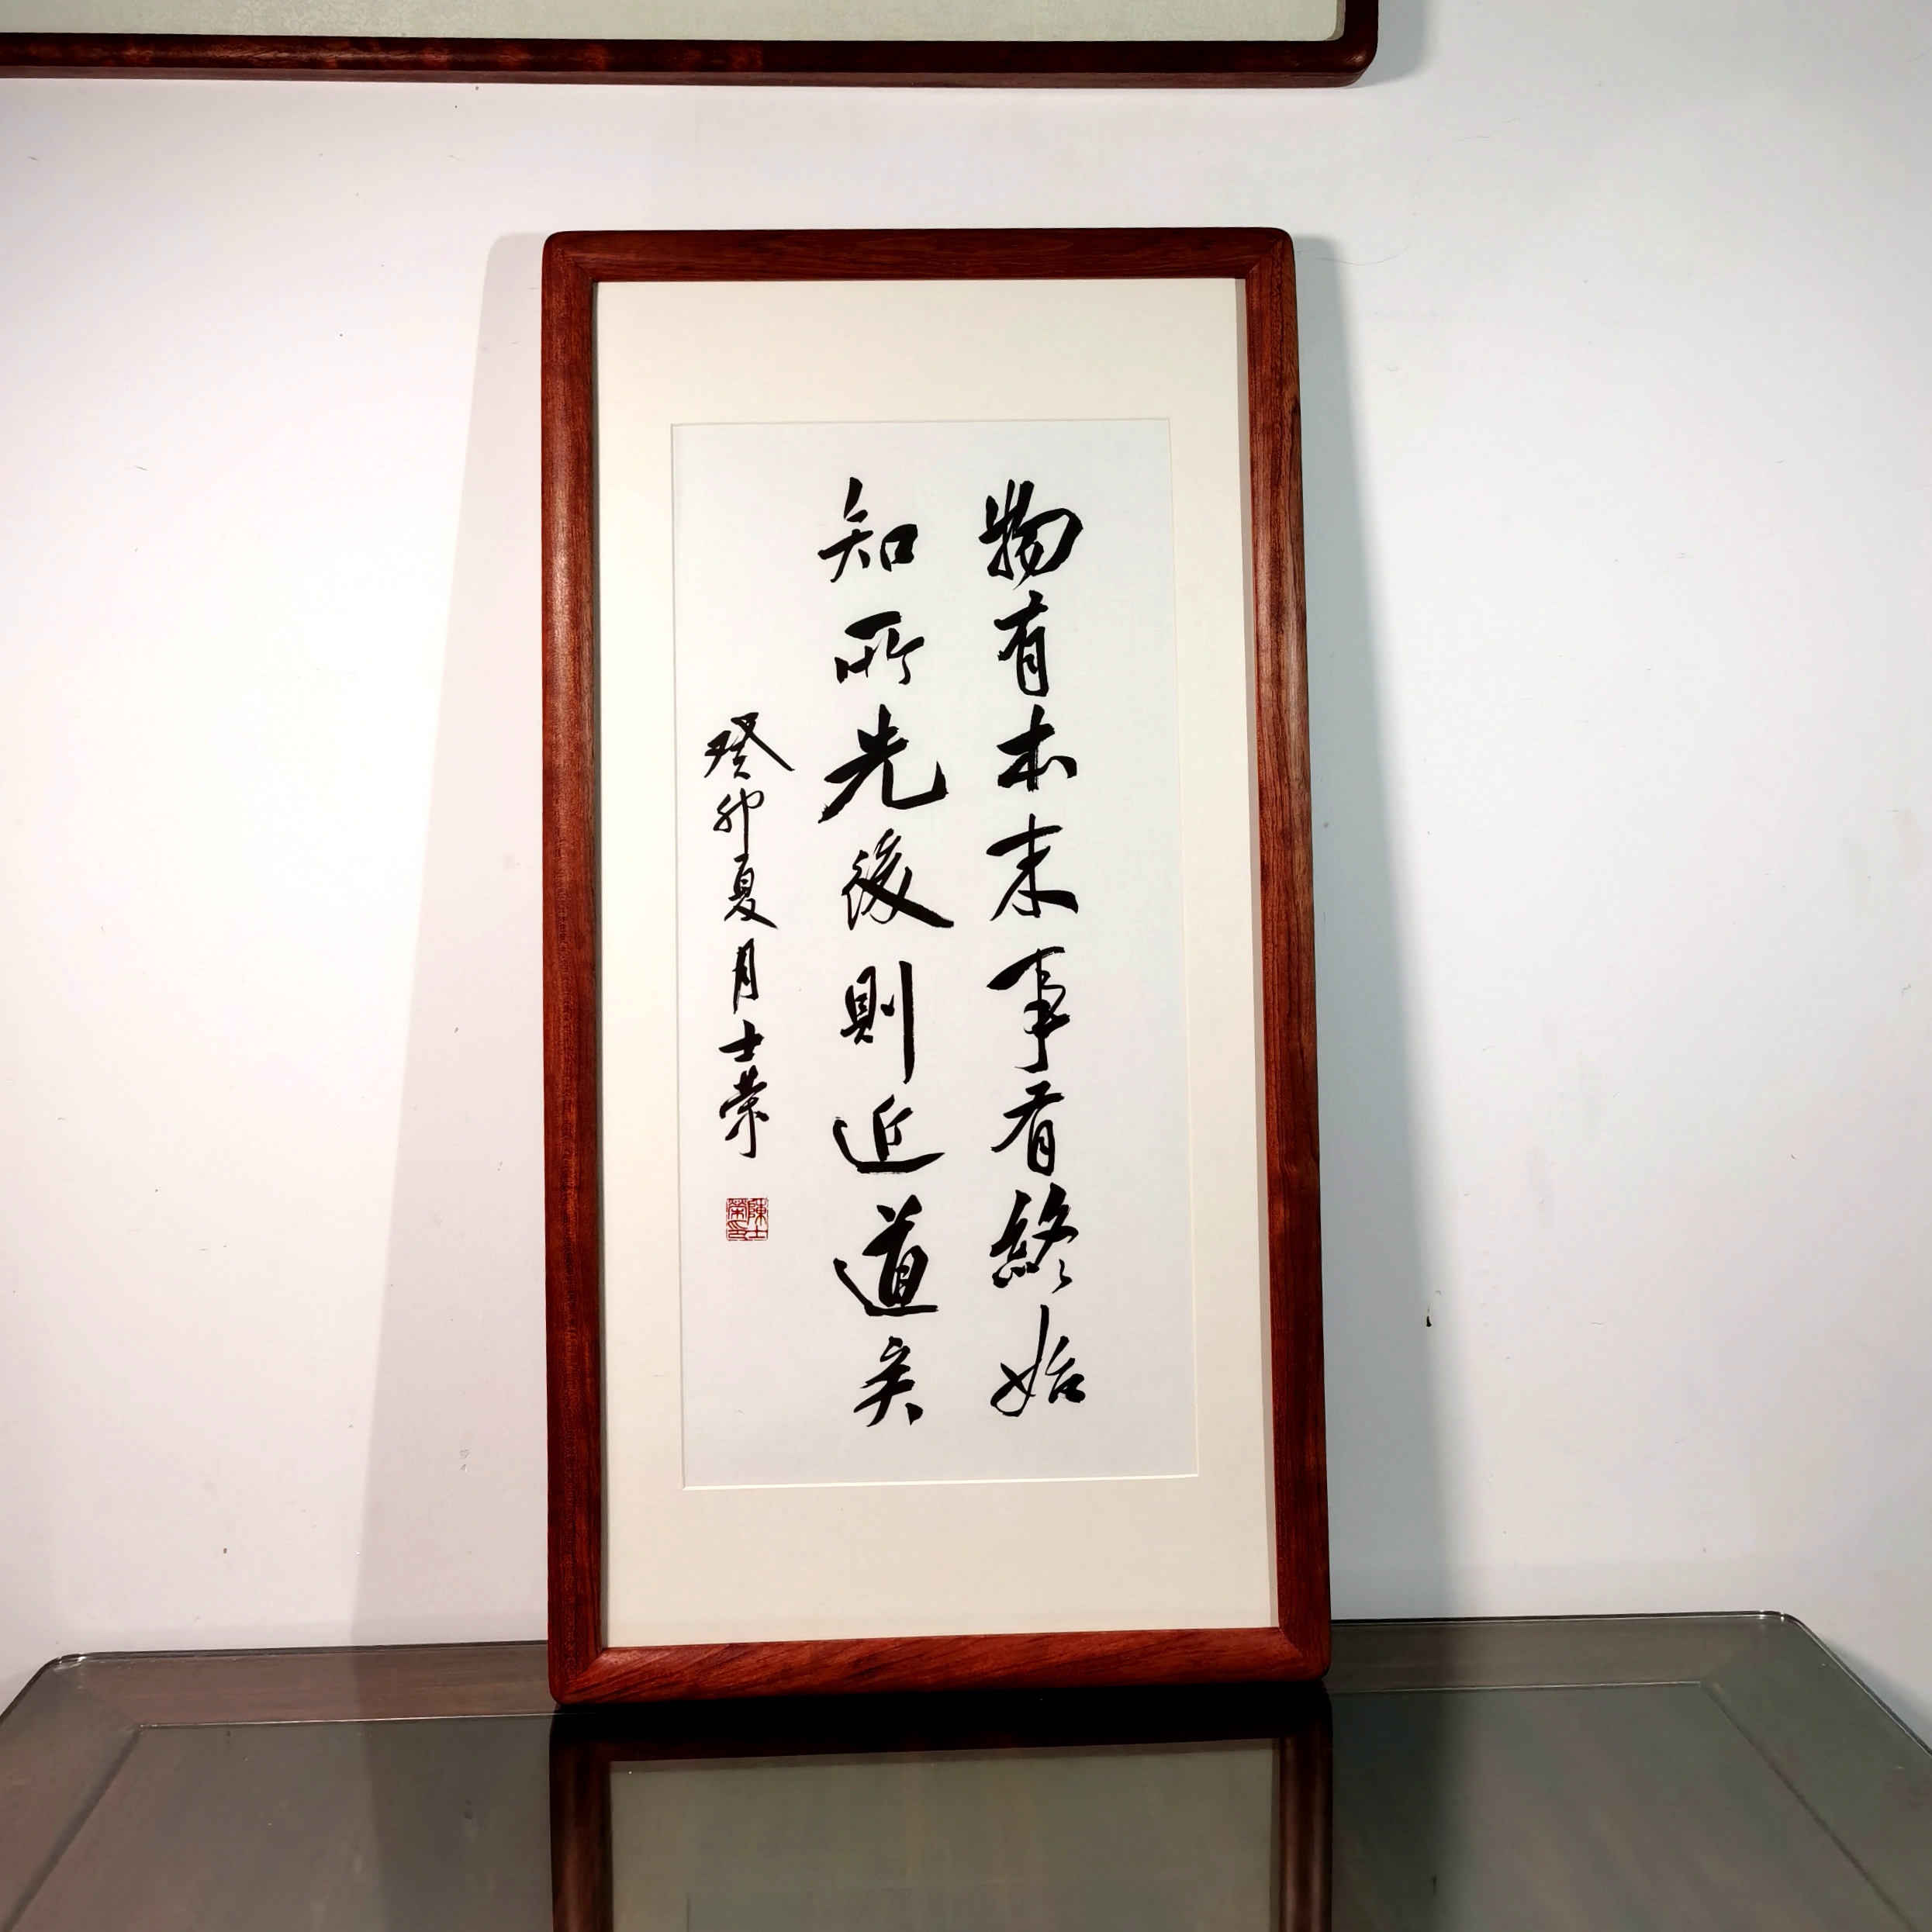 物有本末事有終始
知所先後則近道矣
癸卯夏月士榮
陳士榮印